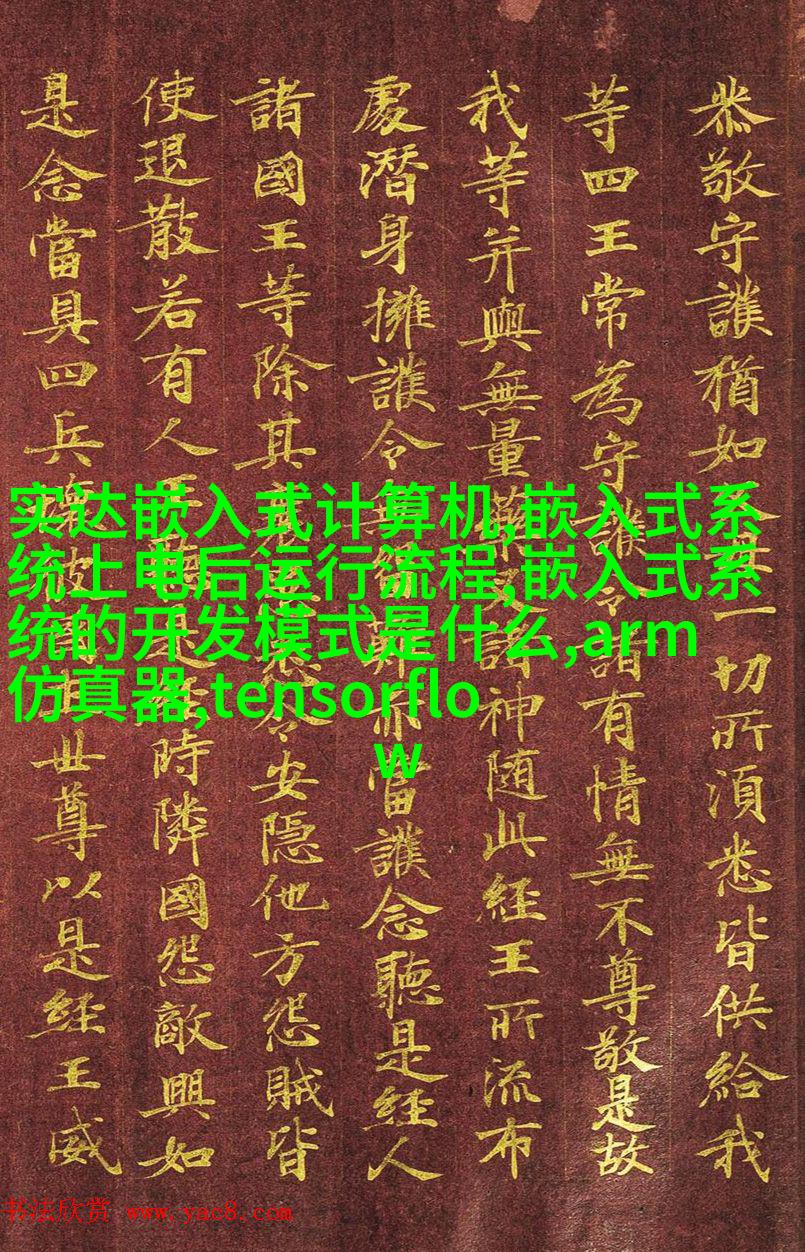 恭敬守護猶如一切所須悉皆供給我
等四王常為守護令諸有情無不尊敬是故
我等并與無量藥叉諸神随此經王所流布
處潜身擁護令亦當護念聽是經人
諸國王等除其令安隱他方怨賊皆
使退散若有人王是經時隣國怨敵興如
是念當具四兵壞彼國世尊以是經王威
实达嵌入式计算机,嵌入式系
统上电后运行流程,嵌入式系
统的开发模式是什么,arm
仿真器,tensorflo
w
书法欣赏 www.yac8.com